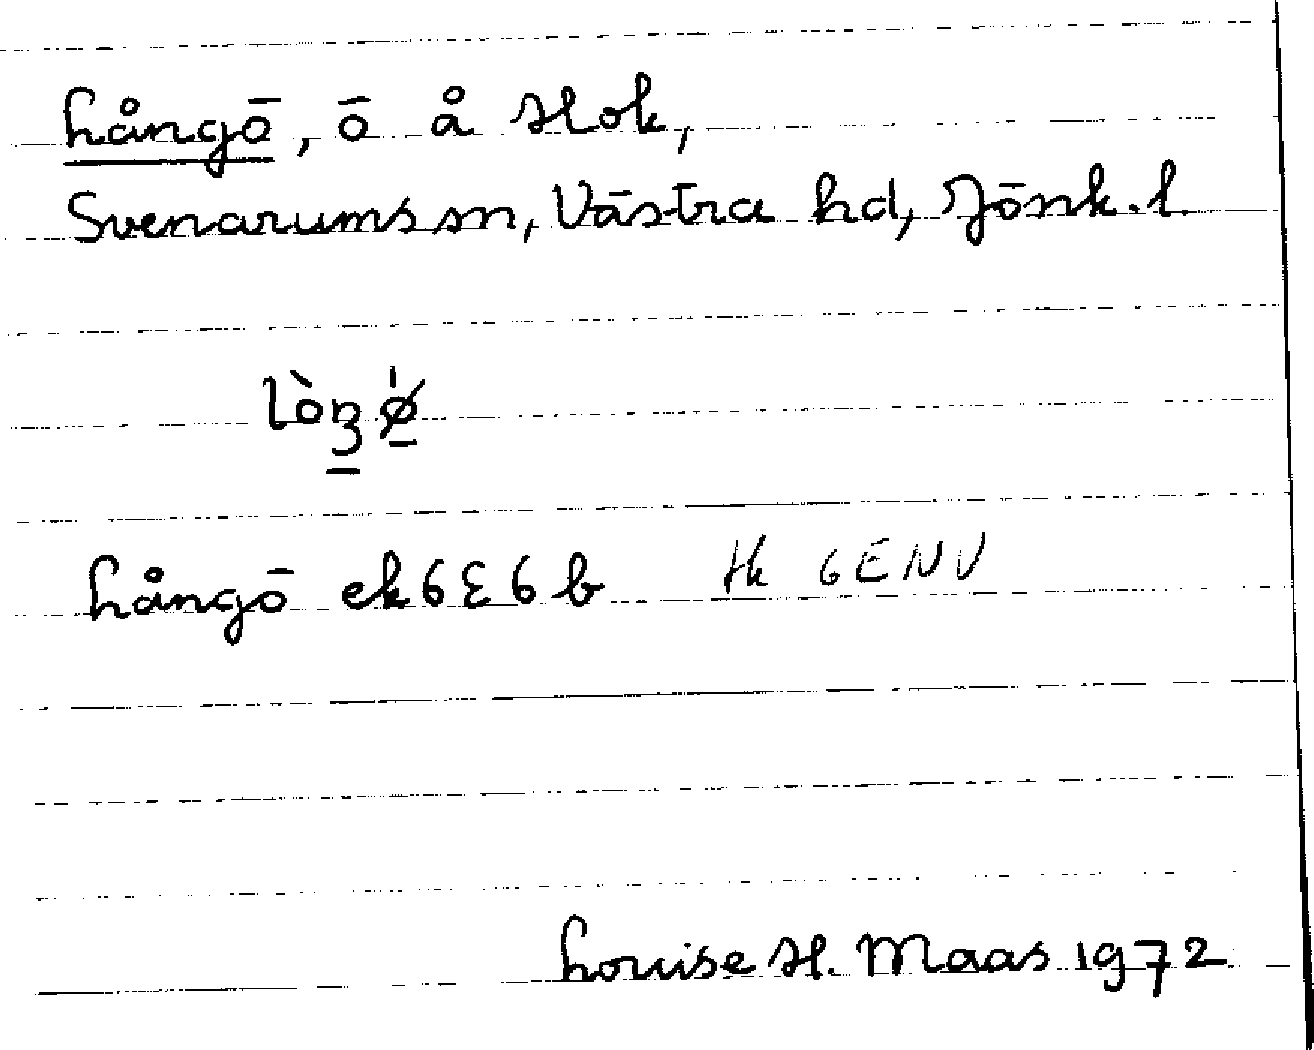 Långö, ö å Hok,
Svenarums sn, Västra hd, Jönk. l.
lòŋø
Långö ek 6E6b Hk 6E NV
Louise H. Maas 1972